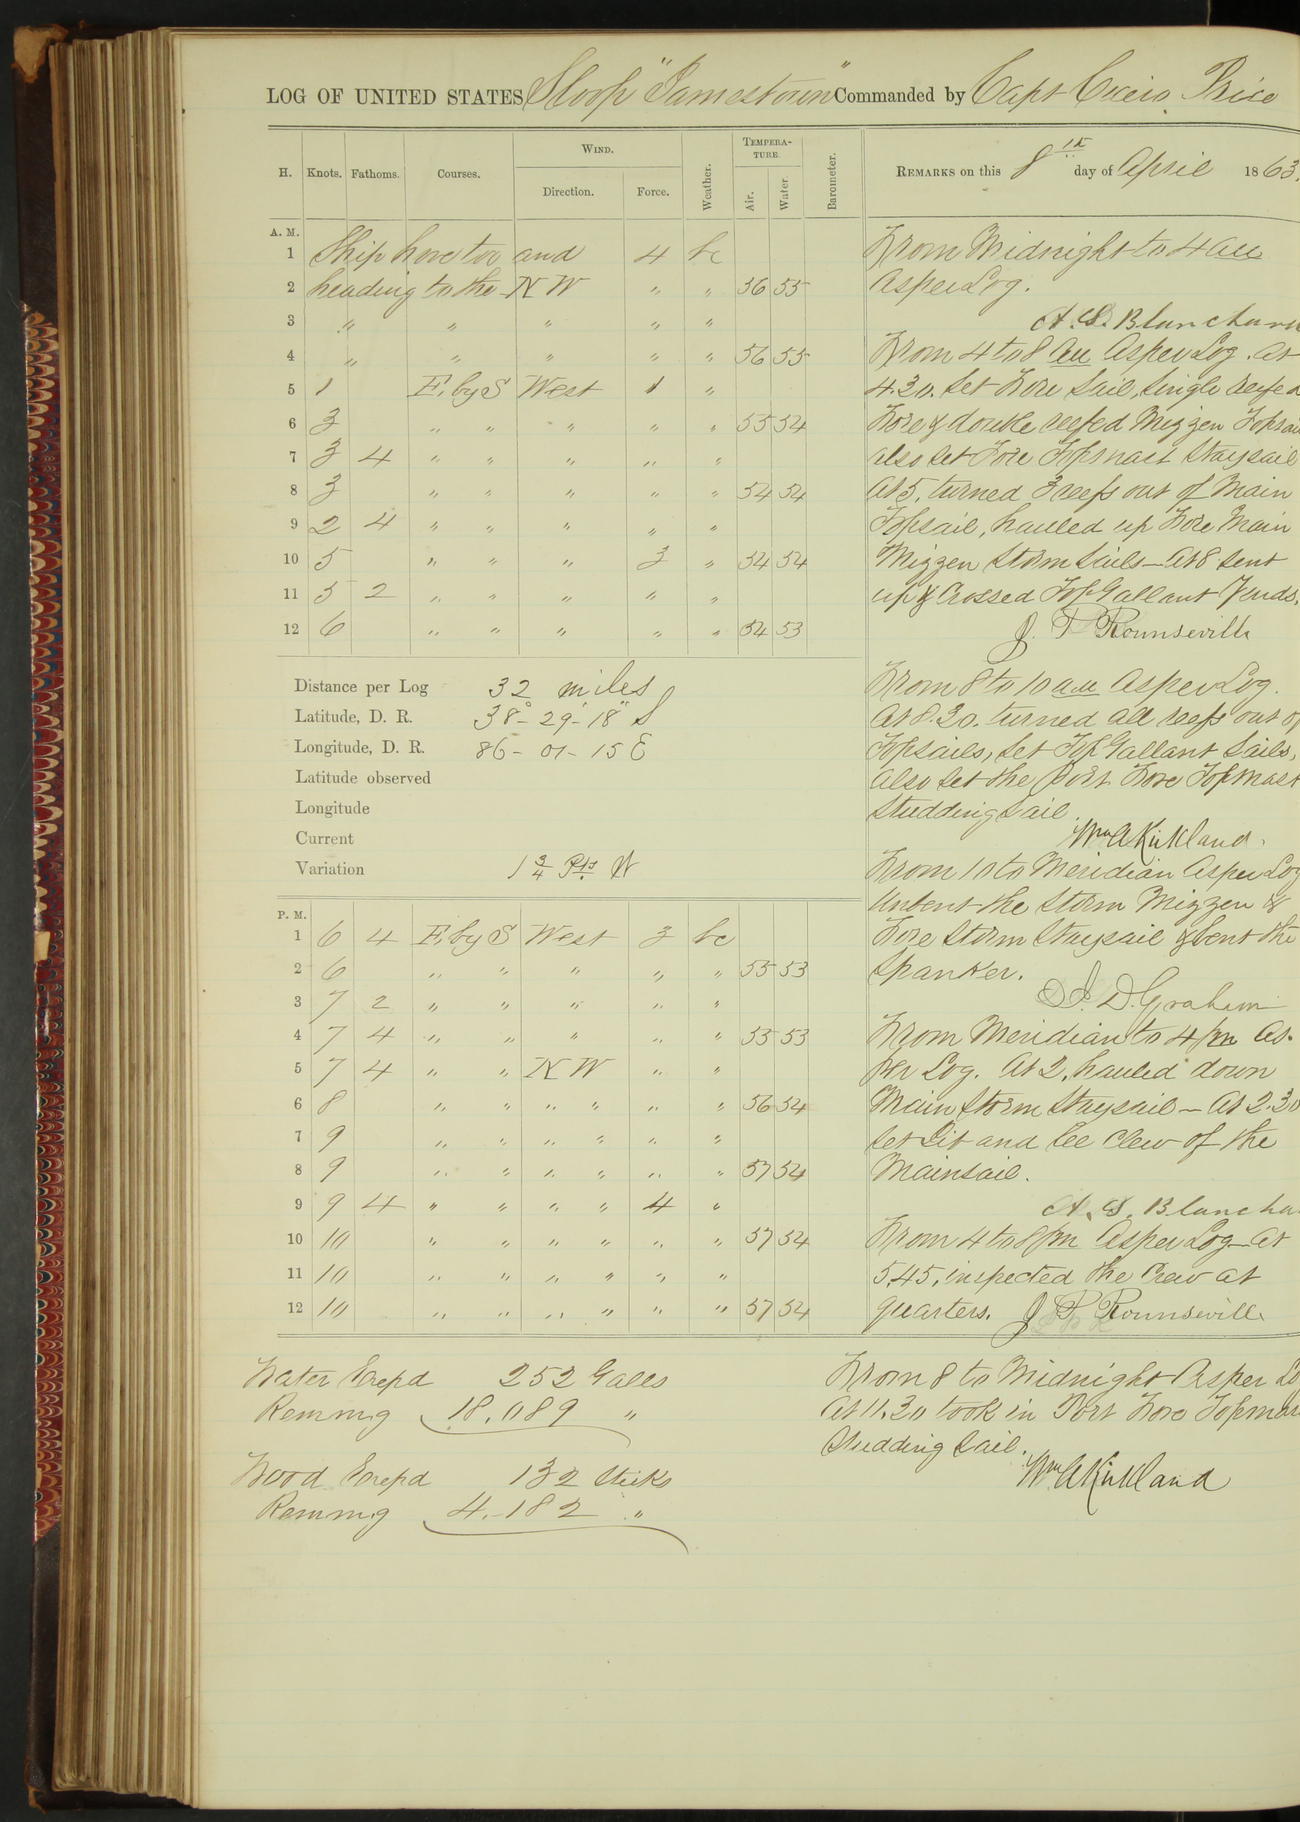 LOG OF UNITED STATES Sloop "Jamestown" Commanded by Capt Cicero Price
H. Knots. Fathoms. Courses. WIND. Direction. Force. Weather. TEMPERATURE. Air. Water. Barometer. REMARKS on this 8th day of April 1863.
A. M.
1 Ship hove too and 4 bc
2 heading to the N W " " 56 55
3 " " " " "
4 " " " " " 56 55
5 1 E. by S West 1 "
6 3 " " " " " 55 54
7 3 4 " " " " "
8 3 " " " " " 54 54
9 2 4 " " " " "
10 5 " " " 3 " 54 54
11 5 2 " " " " "
12 6 " " " " " 54 53
Distance per Log 32 miles
Latitude, D. R. 38°-29'-18" S
Longitude, D. R. 86-01-15 E
Latitude observed
Longitude
Current
Variation 1 3/4 Pts W
P. M.
1 6 4 E. by S West 3 bc
2 6 " " " " " 55 53
3 7 2 " " " " "
4 7 4 " " " " " 55 53
5 7 4 " " N W " "
6 8 " " " " " " 56 54
7 9 " " " " " "
8 9 " " " " " " 57 54
9 9 4 " " " " 4 "
10 10 " " " " " " 57 54
11 10 " " " " " "
12 10 " " " " " " 57 54
Water Expd 252 Galls
Remng 18,089 "
Wood Expd 132 Sticks
Remng 4,182 "
From Midnight to 4 am
As per Log.
A. S. Blanchar
From 4 to 8 am As per Log. At
4.30. Set Fore Sail, Single reefed
Fore & double reefed Mizzen Topsai
also set Fore Topmast Staysail
At 5, turned 3 reefs out of Main
Topsail, hauled up Fore Main
Mizzen Storm Sails— At 8 sent
up & crossed Top Gallant Yards.
J. P. Rounsevill
From 8 to 10 am As per Log.
At 8.30. turned all reefs out of
Topsails, set Top Gallant Sails,
also set the Port Fore Topmast
Studding Sail.
Wm A Kirkland.
From 10 to Meridian As per Log
Unbent the Storm Mizzen &
Fore Storm Staysail & bent the
Spanker.
J. D. Graham
From Meridian to 4 pm As
per Log. At 2, hauled down
Main Storm Staysail— At 2.30
set Jib and lee clew of the
Mainsail.
A. S. Blancha
From 4 to 8 pm As per Log— At
5.45, inspected the Crew at
quarters. J P Rounsevill
From 8 to Midnight As per Lo
At 11.30 took in Port Fore Topmas
Studding Sail.
Wm A Kirkland